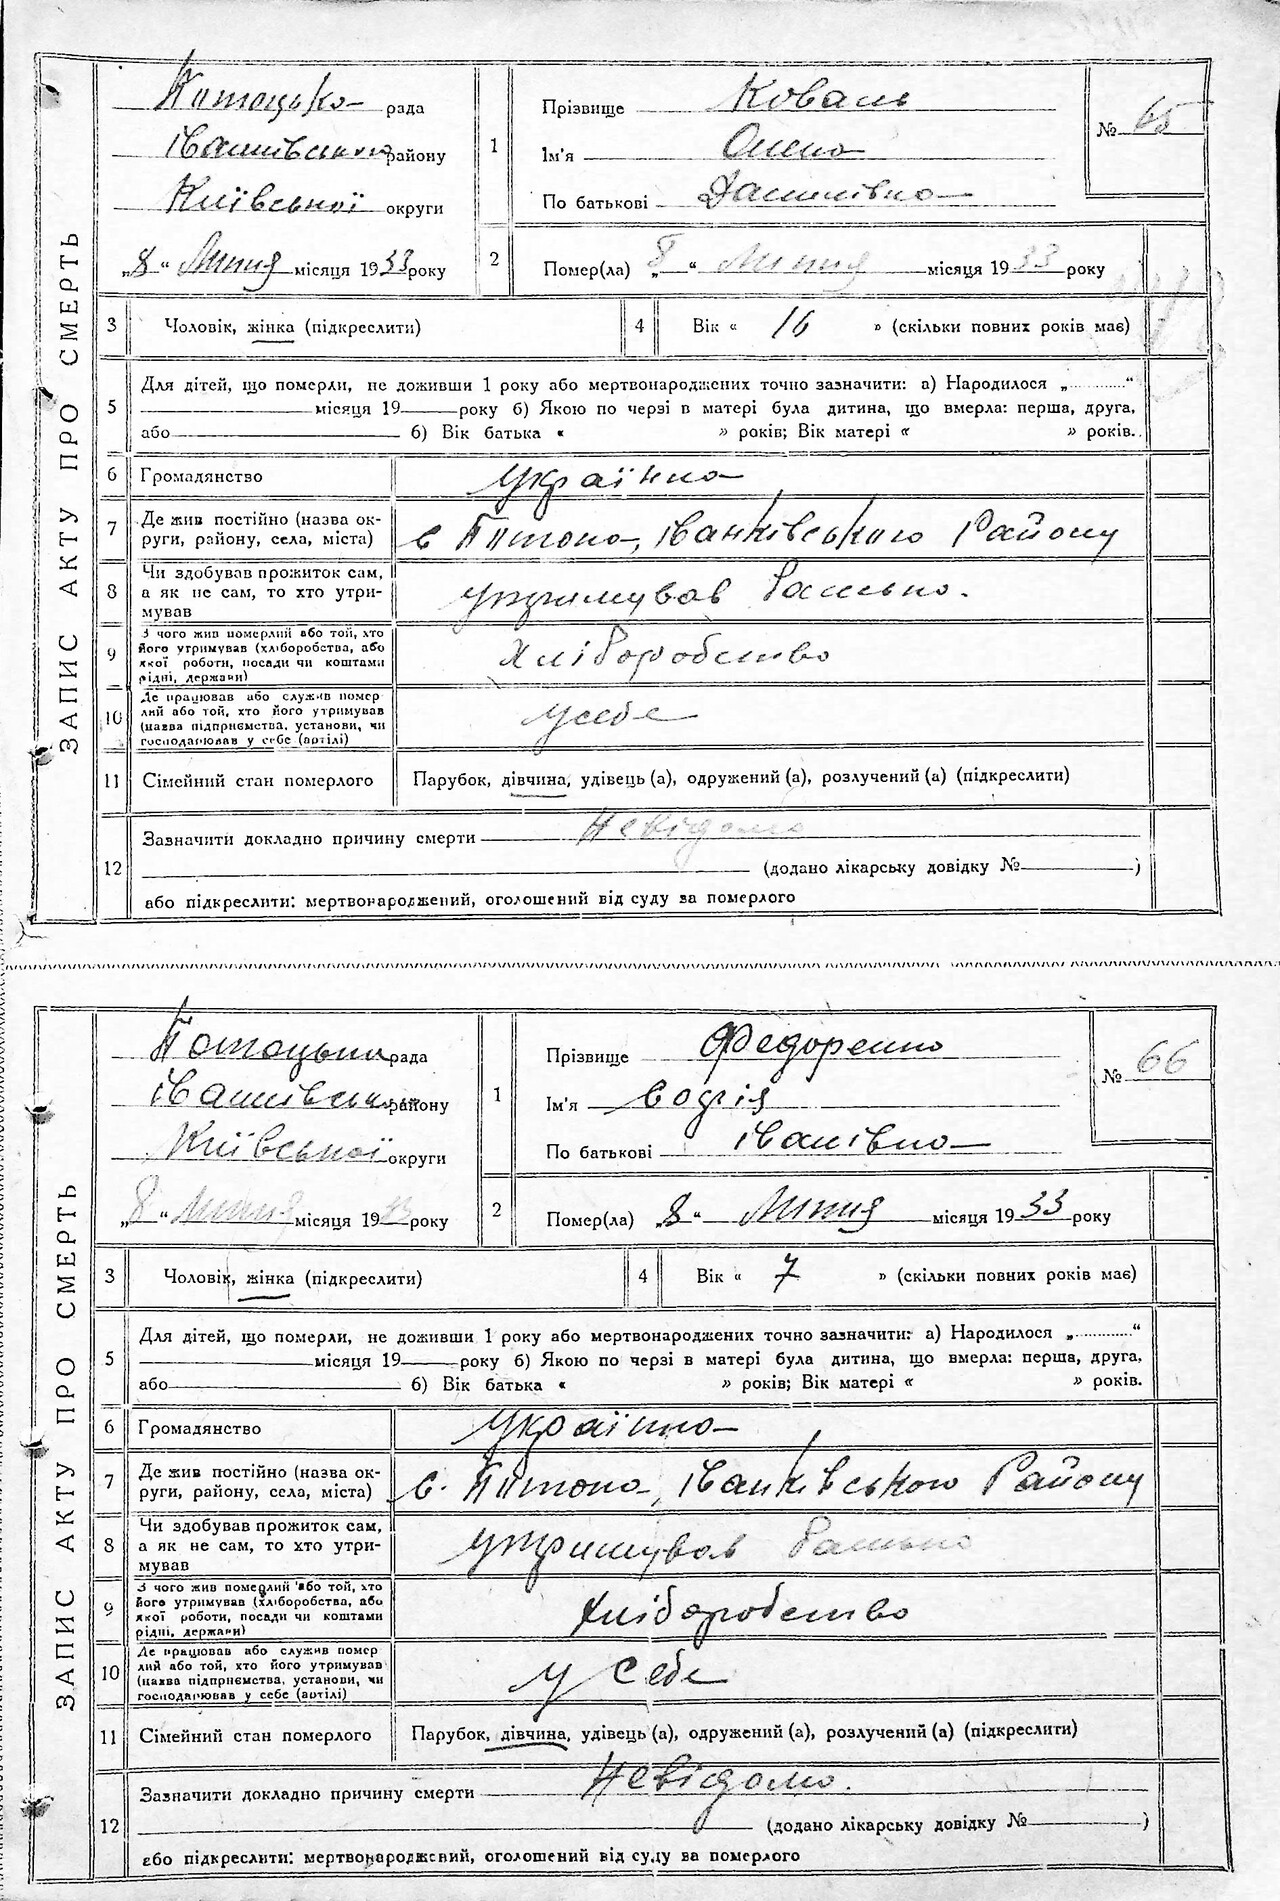 ЗАПИС АКТУ ПРО СМЕРТЬ
рада
Іванківського району
Київської округи
„8“ Липня місяця 1933 року
1
Прізвище Коваль
Ім'я Олена
По батькові Данилівна
№ 65
2
Помер(ла) „8“ Липня місяця 1933 року
3 Чоловік, жінка (підкреслити)
4 Вік « 16 » (скільки повних років має)
5
Для дітей, що померли, не доживши 1 року або мертвонароджених точно зазначити: а) Народилося „..........“
місяця 19 року б) Якою по черзі в матері була дитина, що вмерла: перша, друга,
або б) Вік батька « » років; Вік матері « » років.
6 Громадянство українка
7 Де жив постійно (назва ок-
руги, району, села, міста)
с Іванківського Району
8 Чи здобував прожиток сам,
а як не сам, то хто утри-
мував
утримував батько.
9 З чого жив померлий або той, хто
його утримував (хліборобства, або
якої роботи, посади чи коштами
рідні, держави)
Хліборобство
10 Де працював або служив помер
лий або той, хто його утримував
(назва підприємства, установи, чи
господарював у себе (артілі)
усебе
11 Сімейний стан померлого Парубок, дівчина, удівець (а), одружений (а), розлучений (а) (підкреслити)
12
Зазначити докладно причину смерти Невідомо
(додано лікарську довідку № )
або підкреслити: мертвонароджений, оголошений від суду за померлого
ЗАПИС АКТУ ПРО СМЕРТЬ
рада
Іванківського району
Київської округи
„8“ Липня місяця 1933 року
1
Прізвище Федоренко
Ім'я Софія
По батькові Іванівна
№ 66
2
Помер(ла) „8“ Липня місяця 1933 року
3 Чоловік, жінка (підкреслити)
4 Вік « 7 » (скільки повних років має)
5
Для дітей, що померли, не доживши 1 року або мертвонароджених точно зазначити: а) Народилося „..........“
місяця 19 року б) Якою по черзі в матері була дитина, що вмерла: перша, друга,
або б) Вік батька « » років; Вік матері « » років.
6 Громадянство українка
7 Де жив постійно (назва ок-
руги, району, села, міста)
с. Іванківського Району
8 Чи здобував прожиток сам,
а як не сам, то хто утри-
мував
утримував батько
9 З чого жив померлий або той, хто
його утримував (хліборобства, або
якої роботи, посади чи коштами
рідні, держави)
Хліборобство
10 Де працював або служив помер
лий або той, хто його утримував
(назва підприємства, установи, чи
господарював у себе (артілі)
у себе
11 Сімейний стан померлого Парубок, дівчина, удівець (а), одружений (а), розлучений (а) (підкреслити)
12
Зазначити докладно причину смерти Невідомо.
(додано лікарську довідку № )
або підкреслити: мертвонароджений, оголошений від суду за померлого